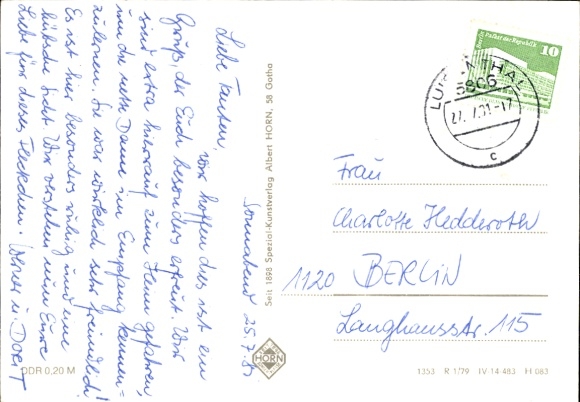 Sonnabend 25.7.81
Liebe Tanten,
wir hoffen dies ist ein
Gruß, der Euch besonders erfreut. Wir
sind extra hierrauf zum Heim gefahren,
um die nette Dame im Empfang kennen=
zulernen. Sie war wirklich sehr freundlich!
Es ist hier besonders ruhig und eine
hübsche Sicht. Wir verstehen nun Eure
Liebe für dieses Fleckchen. Dorit
DDR 0,20 M
Seit 1898 Spezial-Kunstverlag Albert HORN, 58 Gotha
HORN
Berlin Palast der Republik
10
DDR
5806
27.7.81-17
c
Frau
Charlotte Hedderoth
1120 BERLIN
Langhansstr. 115
1353 R 1/79 IV-14-483 H 083